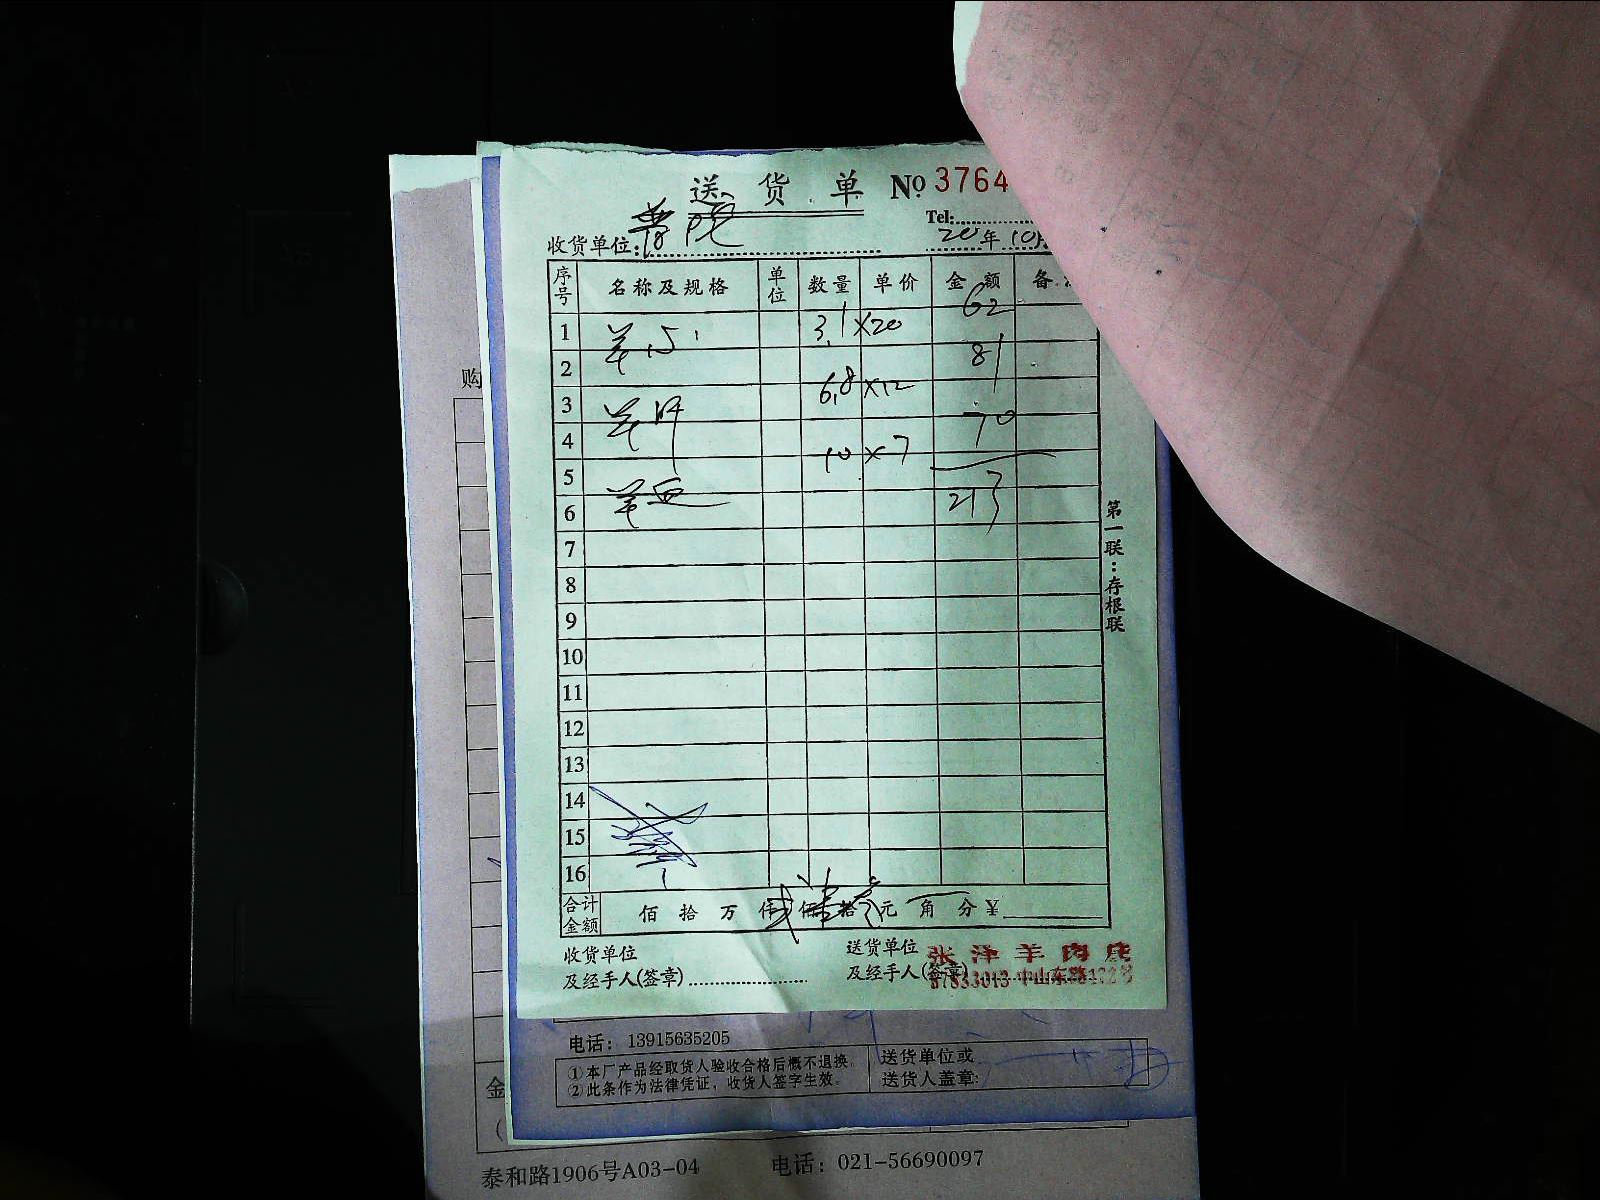 送货单 No 3764
Tel:
收货单位:
20年10月
序号 名称及规格 单位 数量 单价 金额 备
1 羊心 3.1 ×20 62
2 81
3 羊肝 6.8 ×12
4 70
5 10 ×7
6 羊血 213
7
8
9
10
11
12
13
14
15
16
合计金额 佰 拾 万 仟 佰 拾 元 角 分 ¥
收货单位 送货单位 张泽羊肉庄
及经手人(签章) 及经手人(签章)
第一联:存根联
购
电话: 13915635205
①本厂产品经取货人验收合格后概不退换。
②此条作为法律凭证,收货人签字生效。
送货单位或
送货人盖章:
金
(
泰和路1906号A03-04 电话: 021-56690097